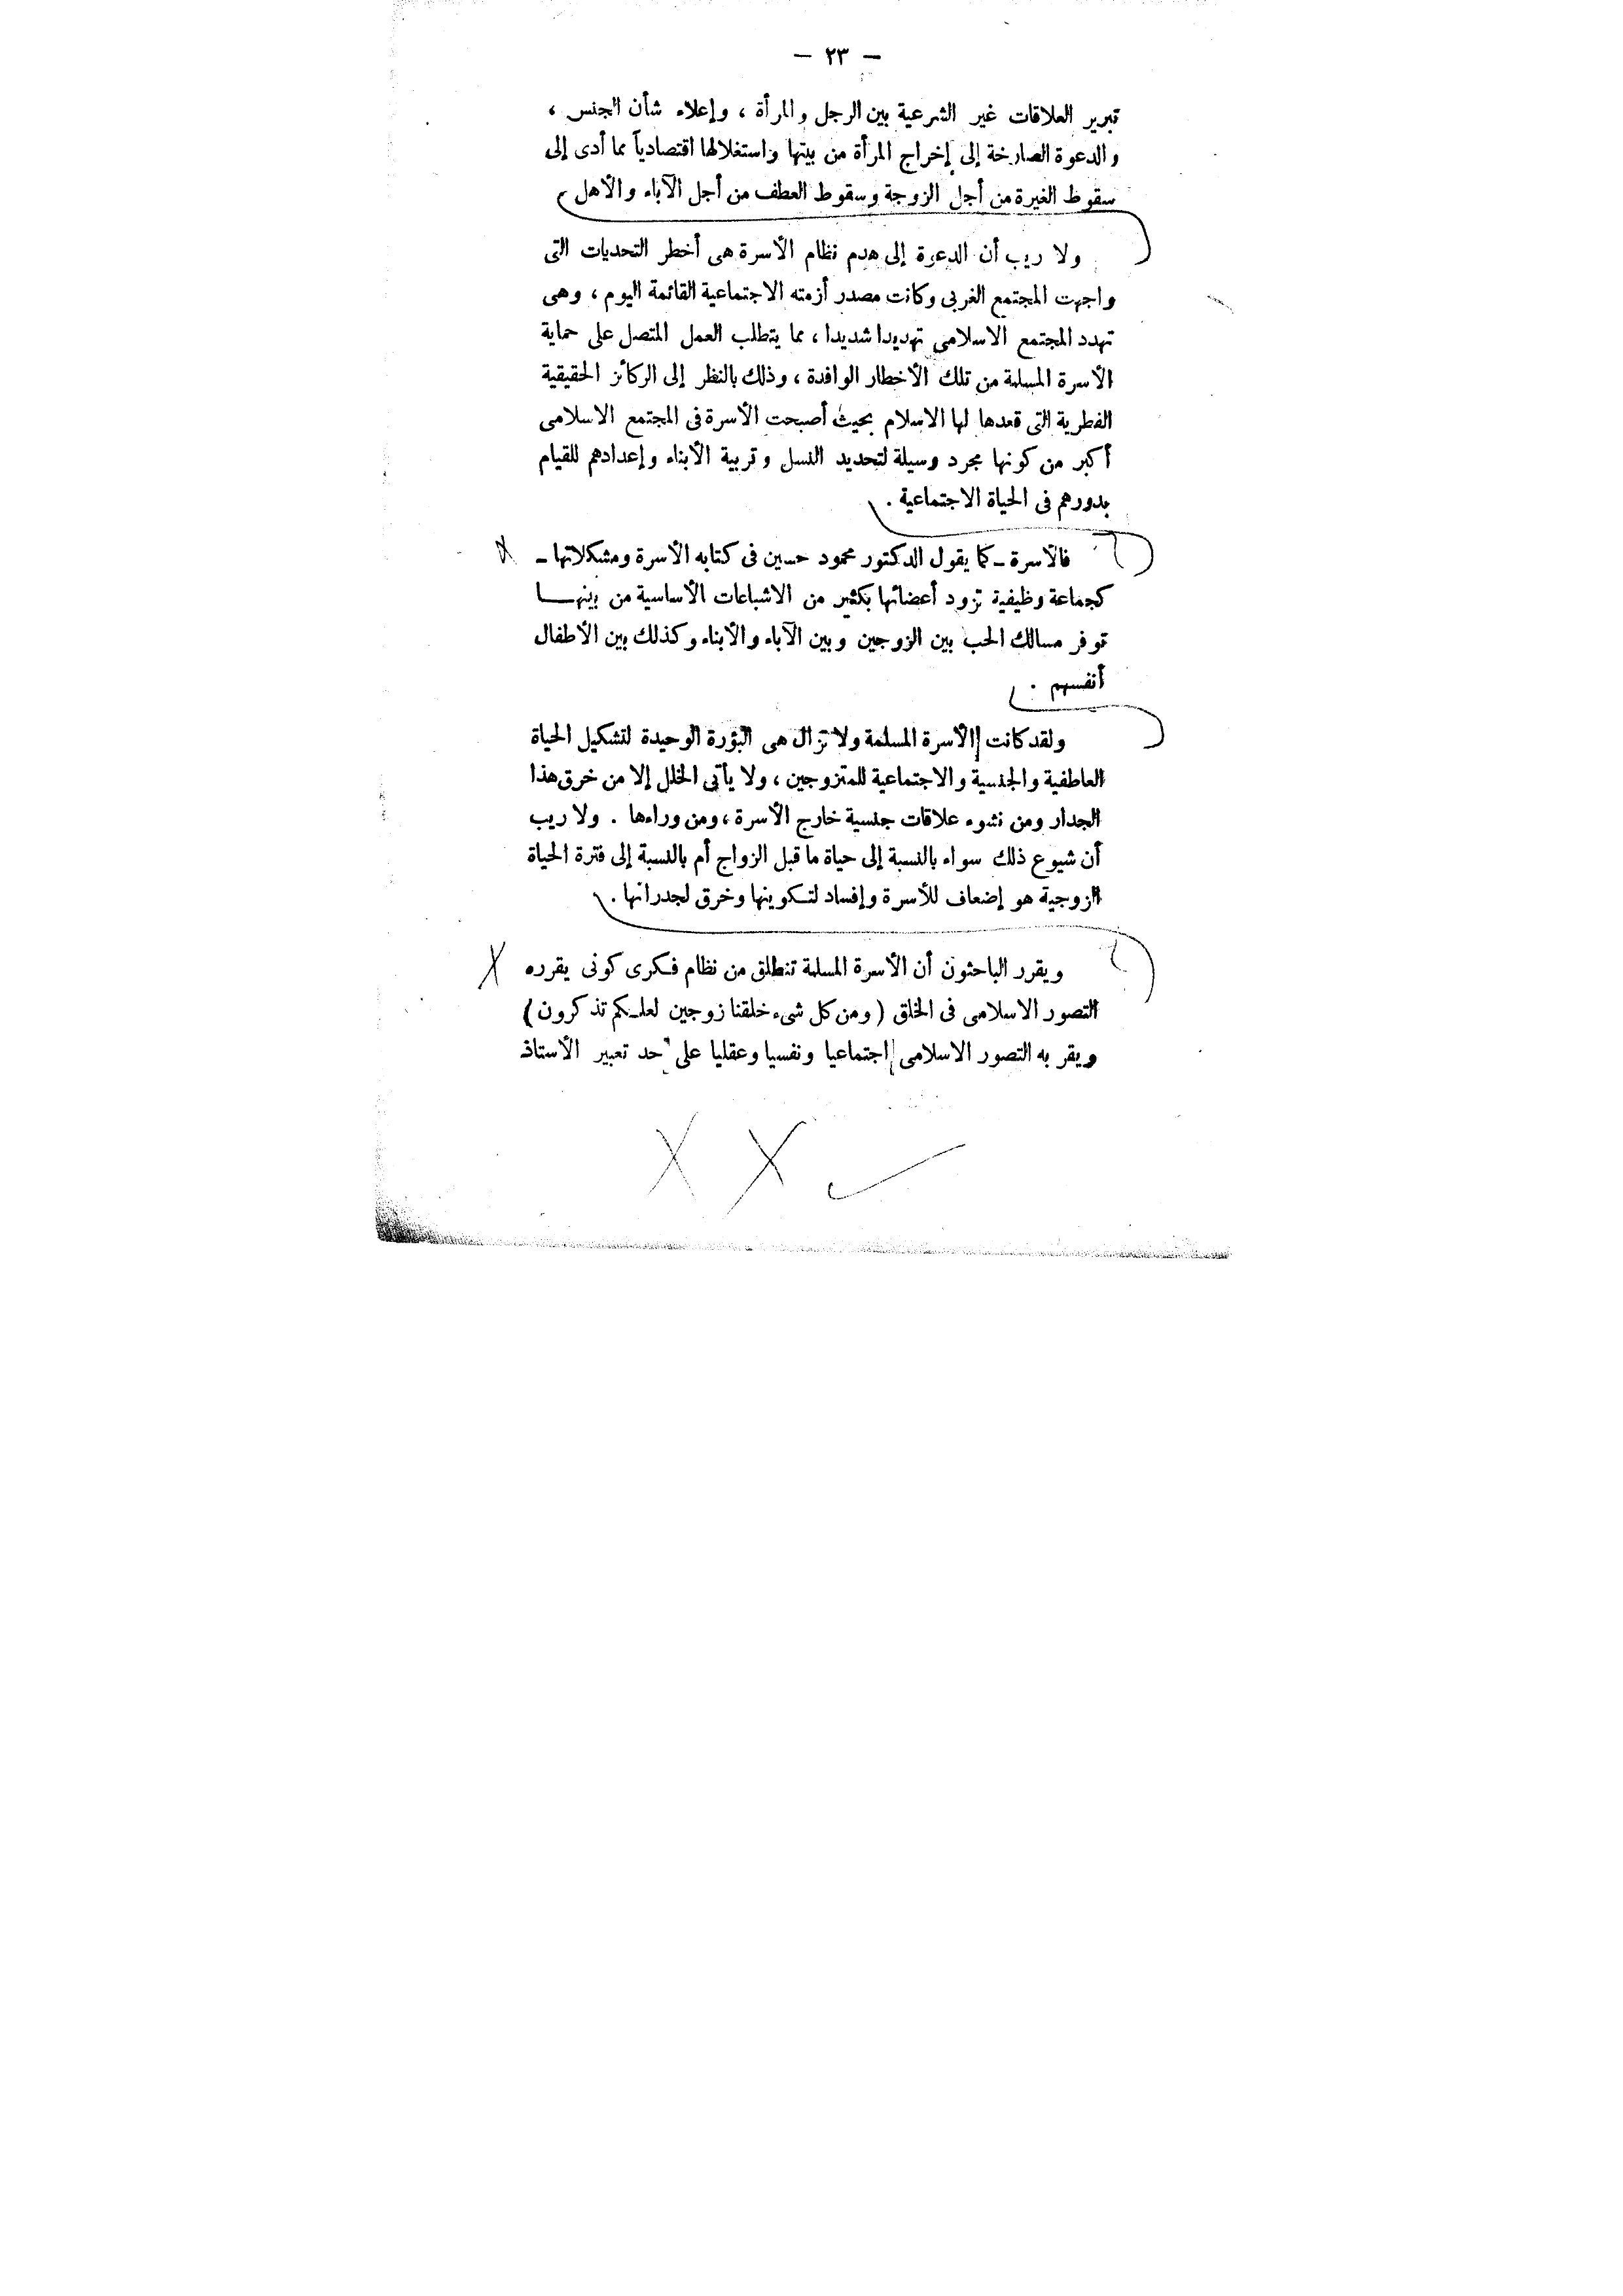 — ٢٣ —
تبرير العلاقات غير الشرعية بين الرجل والمرأة ، وإعلاء شأن الجنس ،
والدعوة الصارخة إلى إخراج المرأة من بيتها واستغلالها اقتصادياً مما أدى إلى
سقوط الغيرة من أجل الزوجة وسقوط العطف من أجل الآباء والأهل
ولا ريب أن الدعوة إلى هدم نظام الأسرة هى أخطر التحديات التى
واجهت المجتمع الغربى وكانت مصدر أزمته الاجتماعية القائمة اليوم ، وهى
تهدد المجتمع الاسلامى تهديدا شديدا ، مما يتطلب العمل المتصل على حماية
الأسرة المسلمة من تلك الأخطار الوافدة ، وذلك بالنظر إلى الركائز الحقيقية
الفطرية التى قعدها لها الاسلام بحيث أصبحت الأسرة فى المجتمع الاسلامى
أكبر من كونها مجرد وسيلة لتحديد النسل وتربية الأبناء وإعدادهم للقيام
بدورهم فى الحياة الاجتماعية .
فالأسرة ــ كما يقول الدكتور محمود حسين فى كتابه الأسرة ومشكلاتها ــ
كجماعة وظيفية تزود أعضائها بكثير من الاشباعات الأساسية من بينهــا
توفر مسالك الحب بين الزوجين وبين الآباء والأبناء وكذلك بين الأطفال
أنفسهم .
ولقد كانت الأسرة المسلمة ولا تزال هى البؤرة الوحيدة لتشكيل الحياة
العاطفية والجنسية والاجتماعية للمتزوجين ، ولا يأتى الخلل إلا من خرق هذا
الجدار ومن نشوء علاقات جنسية خارج الأسرة ، ومن وراءها . ولا ريب
أن شيوع ذلك سواء بالنسبة إلى حياة ما قبل الزواج أم بالنسبة إلى فترة الحياة
الزوجية هو إضعاف للأسرة وإفساد لتكوينها وخرق لجدرانها .
ويقرر الباحثون أن الأسرة المسلمة تنطلق من نظام فكرى كونى يقرره
التصور الاسلامى فى الخلق ( ومن كل شىء خلقنا زوجين لعلكم تذكرون )
ويقر به التصور الاسلامى اجتماعيا ونفسيا وعقليا على حد تعبير الأستاذ